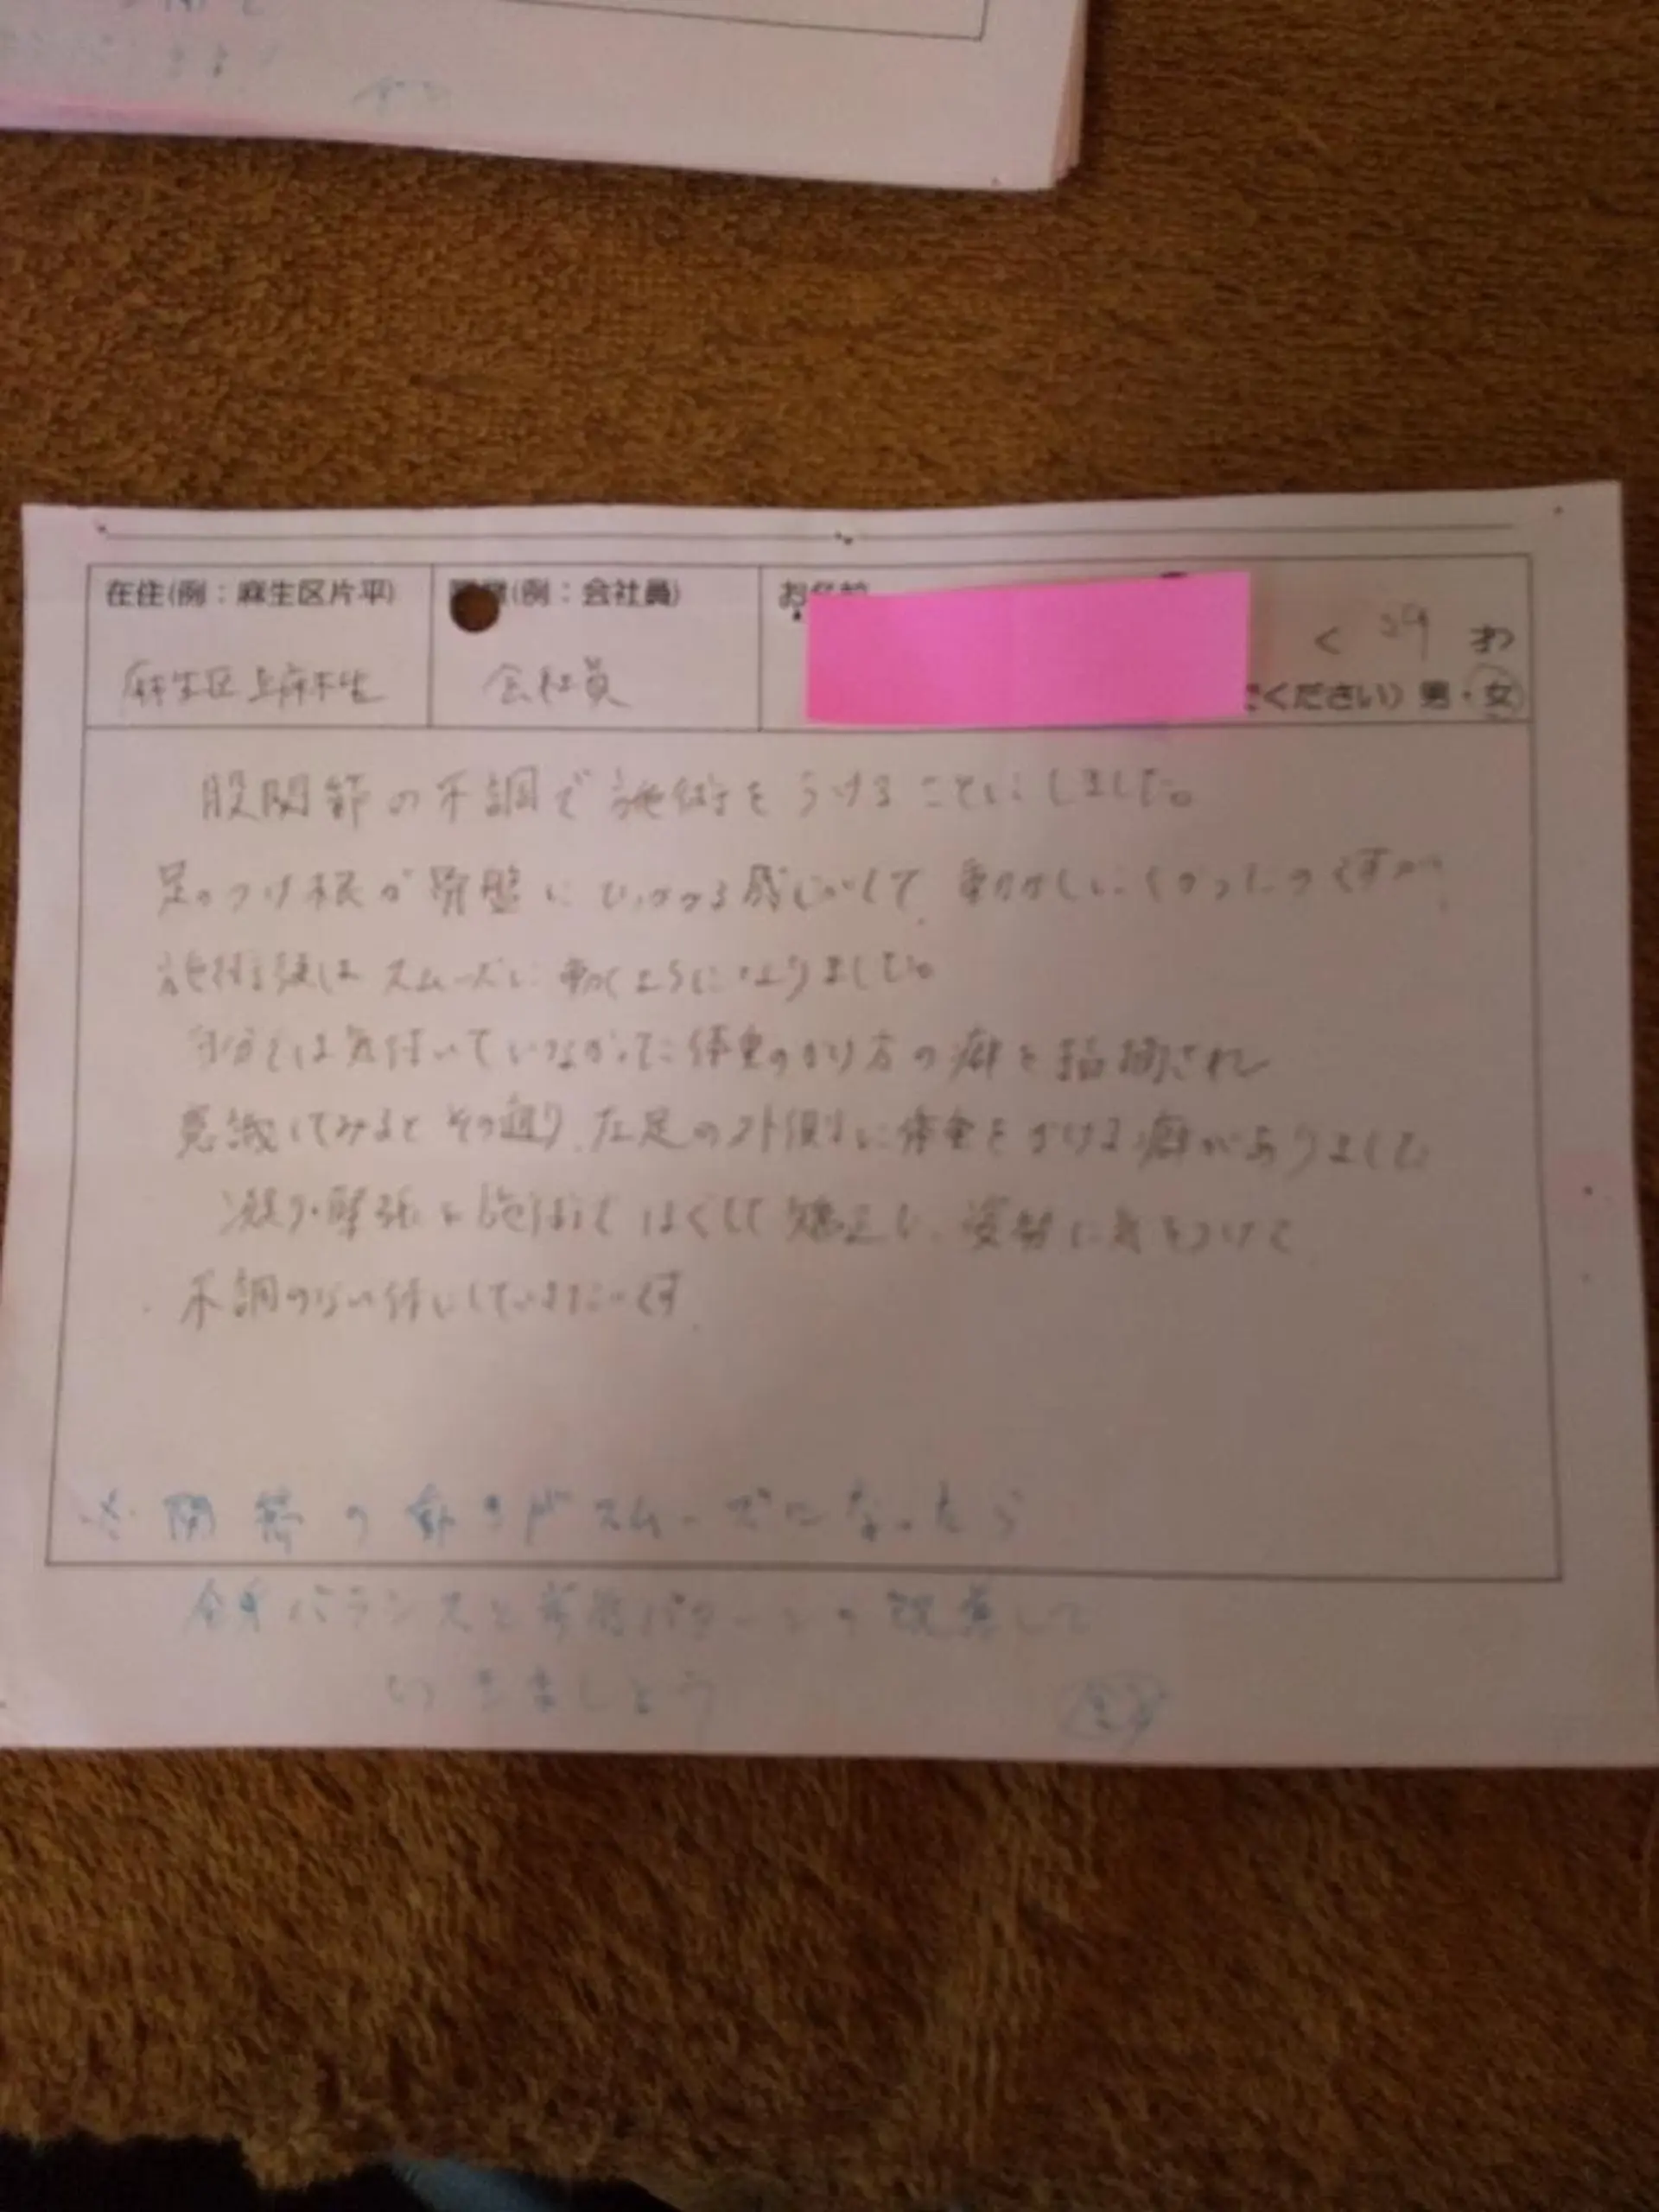 在住(例：麻生区片平)
(例：会社員)
お名前
く 29 才
ください) 男・女
麻生区上麻生
会社員
股関節の不調で施術をうけることにしました。
足のつけ根が骨盤にひっかかる感じがして、動かしにくかったのですが、
施術後はスムーズに動くようになりました。
自分では気付いていなかった体重のかけ方の癖を指摘され
意識してみるとその通り、左足の外側に体重をかける癖がありました
凝り・緊張を施術でほぐして矯正し、姿勢に気をつけて
不調のない体にしていきたいです。
関節の動きがスムーズになったら
全身バランスと 改善して
いきましょう